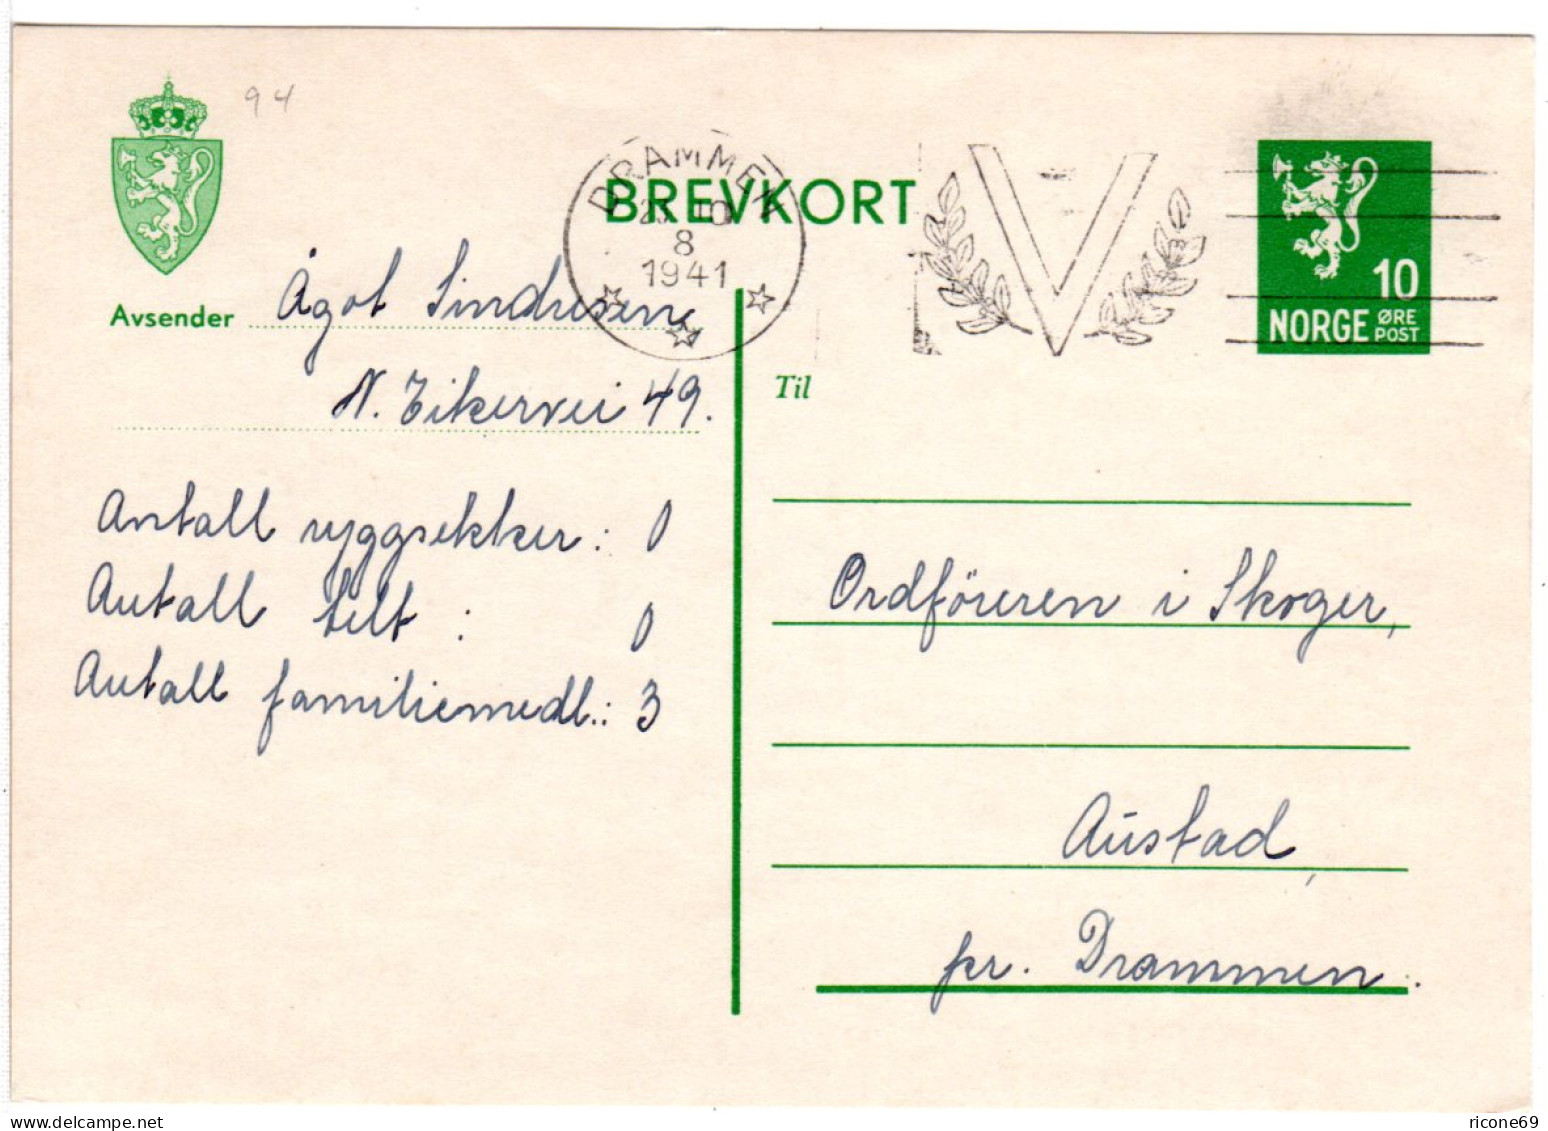 94
DRAMMEN
8
1941
V
BREVKORT
10
NORGE ØRE POST
Avsender Ågot Sindresen,
N. Eikervei 49.
Til
Antall ryggsekker: 0
Antall telt: 0
Antall familiemedl.: 3
Ordföreren i Skoger,
Aüstad,
pr. Drammen.
delcampe.net
ricone69